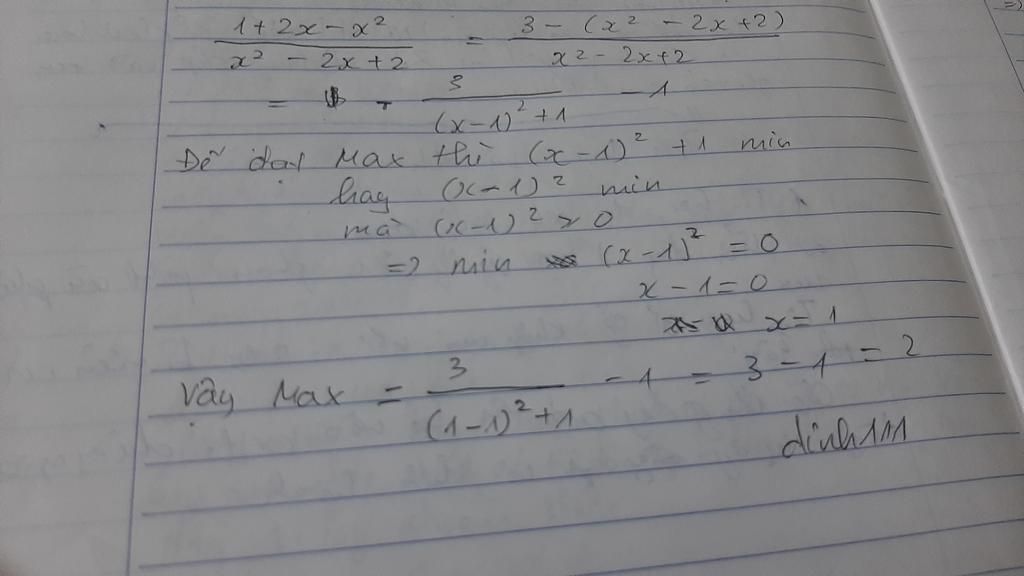 \frac{1+2x-x^2}{x^2-2x+2} = \frac{3-(x^2-2x+2)}{x^2-2x+2}
= \frac{3}{(x-1)^2+1} - 1
Để đạt Max thì (x-1)^2 + 1 min
hay (x-1)^2 min
mà (x-1)^2 > 0
=> min (x-1)^2 = 0
x - 1 = 0
x = 1
Vậy Max = \frac{3}{(1-1)^2+1} - 1 = 3 - 1 = 2
dinh111